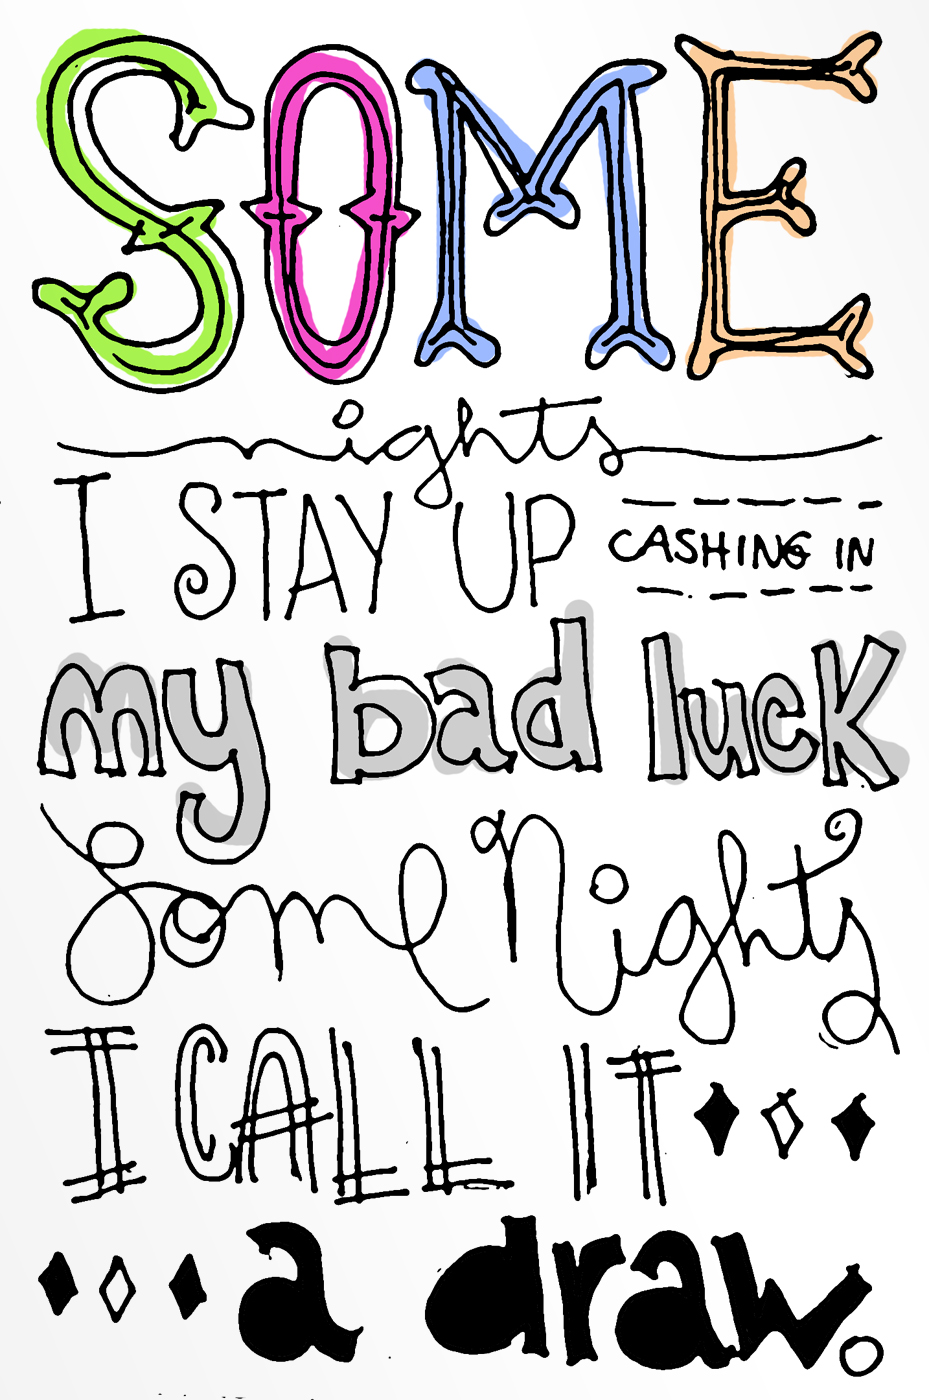 SOME
nights
I STAY UP CASHING IN
my bad luck
Some Nights
I CALL IT
a draw.